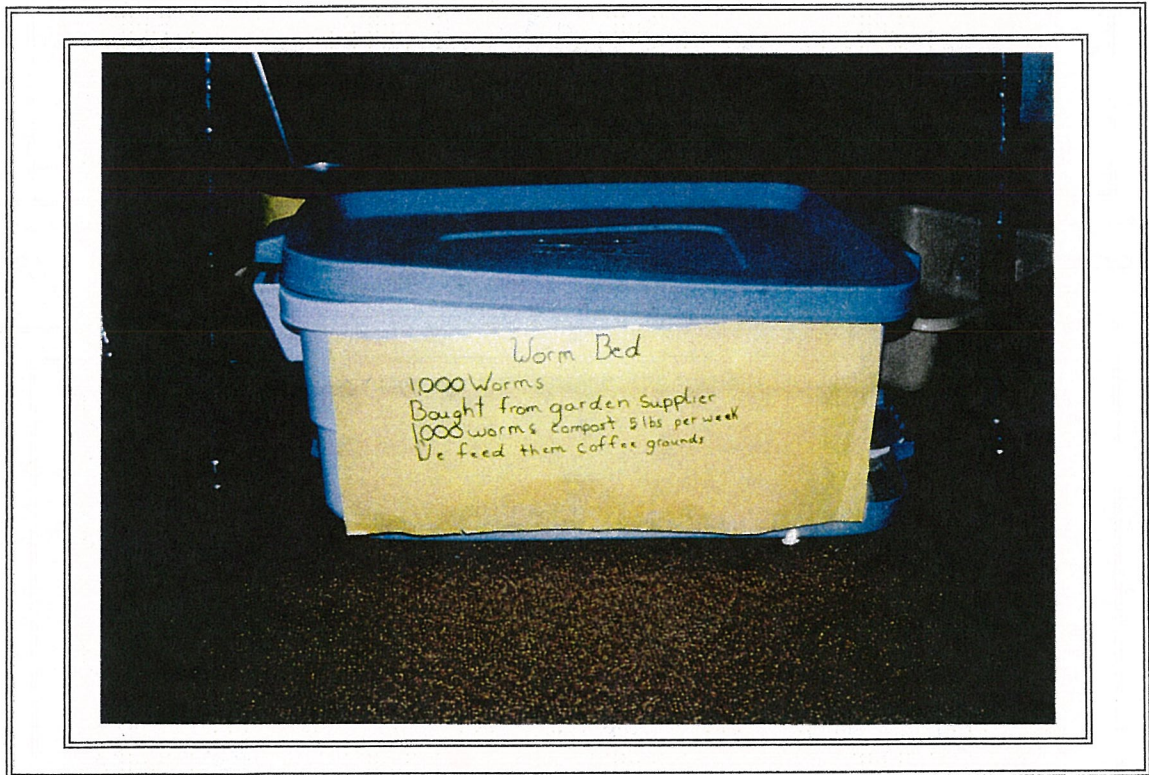 Worm Bed
1,000 Worms
Bought from garden supplier
1000 worms compost 5 lbs per week
We feed them coffee grounds